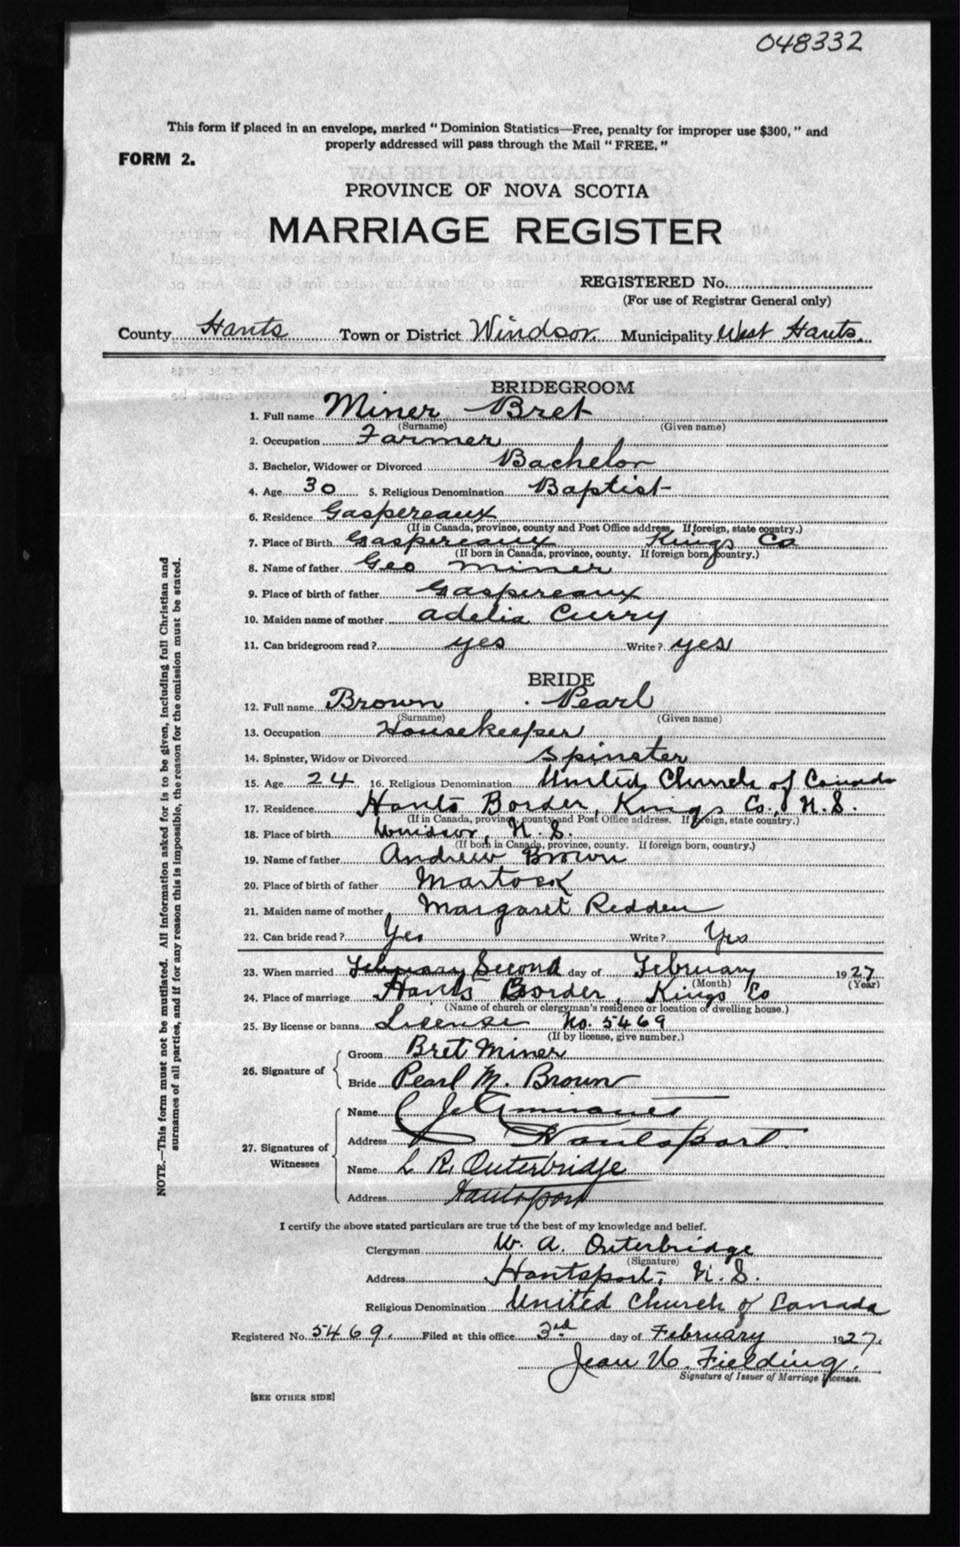 048332
This form if placed in an envelope, marked " Dominion Statistics—Free, penalty for improper use $300, " and
properly addressed will pass through the Mail " FREE. "
FORM 2.
PROVINCE OF NOVA SCOTIA
MARRIAGE REGISTER
REGISTERED No.
(For use of Registrar General only)
County Hants Town or District Windsor. Municipality West Hants.
BRIDEGROOM
1. Full name Miner Bret
(Surname) (Given name)
2. Occupation Farmer
3. Bachelor, Widower or Divorced Bachelor
4. Age 30 5. Religious Denomination Baptist
6. Residence Gaspereaux
(If in Canada, province, county and Post Office address. If foreign, state country.)
7. Place of Birth Gaspereaux Kings Co
(If born in Canada, province, county. If foreign born, country.)
8. Name of father Geo Miner
9. Place of birth of father Gaspereaux
10. Maiden name of mother Adelia Curry
11. Can bridegroom read? yes Write? yes
BRIDE
12. Full name Brown Pearl
(Surname) (Given name)
13. Occupation Housekeeper
14. Spinster, Widow or Divorced Spinster
15. Age 24 16. Religious Denomination United Church of Canada
17. Residence Hants Border, Kings Co., N.S.
(If in Canada, province, county and Post Office address. If foreign, state country.)
18. Place of birth Windsor, N.S.
(If born in Canada, province, county. If foreign born, country.)
19. Name of father Andrew Brown
20. Place of birth of father Martock
21. Maiden name of mother Margaret Redden
22. Can bride read? Yes Write? Yes
23. When married February Second day of February 1927
(Month) (Year)
24. Place of marriage Hants Border, Kings Co
(Name of church or clergyman's residence or location of dwelling house.)
25. By license or banns License No. 5469
(If by license, give number.)
26. Signature of
Groom Bret Miner
Bride Pearl M. Brown
27. Signatures of Witnesses
Name
Address Hantsport
Name L R. Outerbridge
Address Hantsport
I certify the above stated particulars are true to the best of my knowledge and belief.
Clergyman W. A. Outerbridge
(Signature)
Address Hantsport, N.S.
Religious Denomination United Church of Canada
Registered No. 5469. Filed at this office 3rd day of February 1927.
Jean W. Fielding.
Signature of Issuer of Marriage Licenses.
[SEE OTHER SIDE]
NOTE.—This form must not be mutilated. All information asked for is to be given, including full Christian and
surnames of all parties, and if for any reason this is impossible, the reason for the omission must be stated.